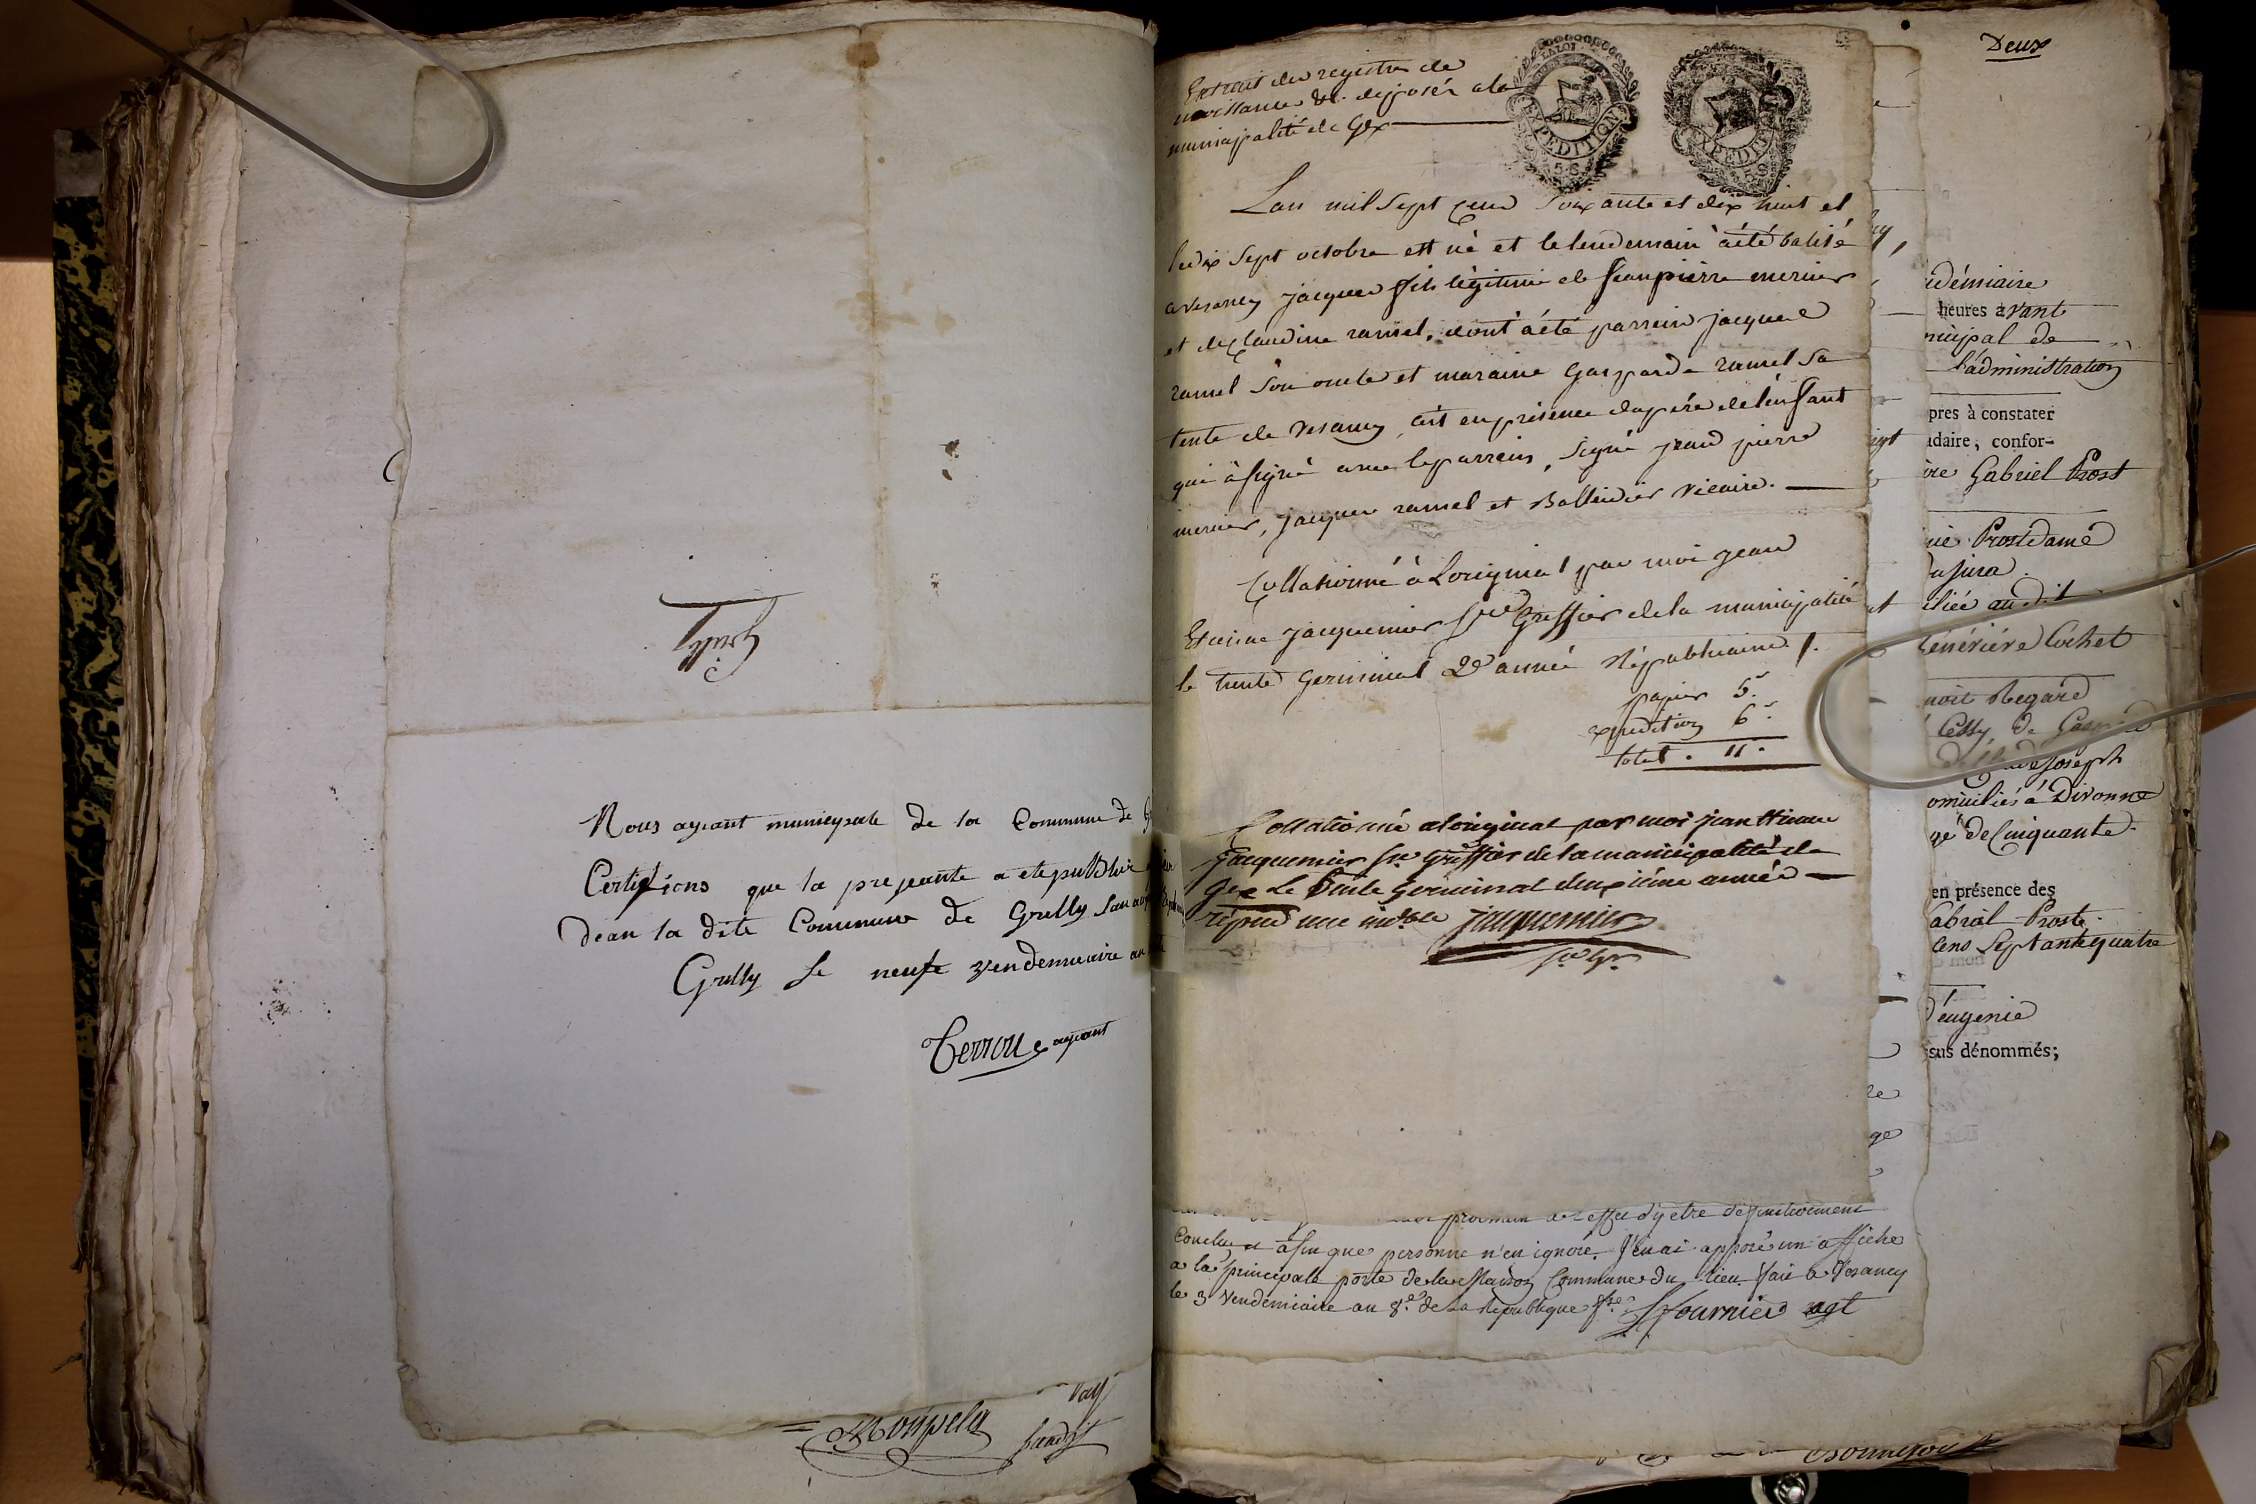 Grilly
Nous ageant municypale de la Commune de
Certifions que la presante a ete publier
dean la dite Commune de Grilly
Grilly le neufe vendemieaire an
Terroux ageant
Extrait des registres de
naissances &c. déposés a la
municipalité de Gex
LA LOI
EXPEDITION
5.S.
EXPEDITION
Lan mil sept cend soixante et dix huit et
le dix sept octobre est né et le lendemain à été batisé
a vesancy jacques fils légitime de Jean pierre mermier
et de Claudine ramel, dont à été parrein jacques
ramel son oncle et maraine Gasparde ramel sa
tente de vesancy, cet en présence du pére de lenfant
qui à signé avec le parrein, signé jean pierre
mermier, jacques ramel et Balleidier vicaire.
Collationné à Loriginal par moi jean
Etienne jacquemier sre Greffier de la municipalité
le trente Germinal 2e année Républicaine
papier 5s
expedition 6s
total . 11s
Collationné aloriginal par moi jean Etienne
jacquemier sre Greffier de la municipalité de
Gex Le trente Germinal deuxième année
répub une indble jacquemier
sre Gr.
a leffet dy etre définitivement
Conclu et afin que personne n'en ignore. J'en ai apposé un affiche
a la principale porte de la Maison Commune du lieu. Fait a Vesancy
le 3 Vendemiaire an 8e de la Republique fse Fournier agt
Deux
démiaire
heures avant
nicipal de
l'administration
pres à constater
daire, confor-
Gabriel Prost
Prost dame
du jura
liée au dit
Cochet
noit Regard
Cessy, de
Joseph
omiciliés à Divonne
gé de Cinquante
en présence des
abriel Prost
cens Septante quatre
d'eugenie
sus dénommés;